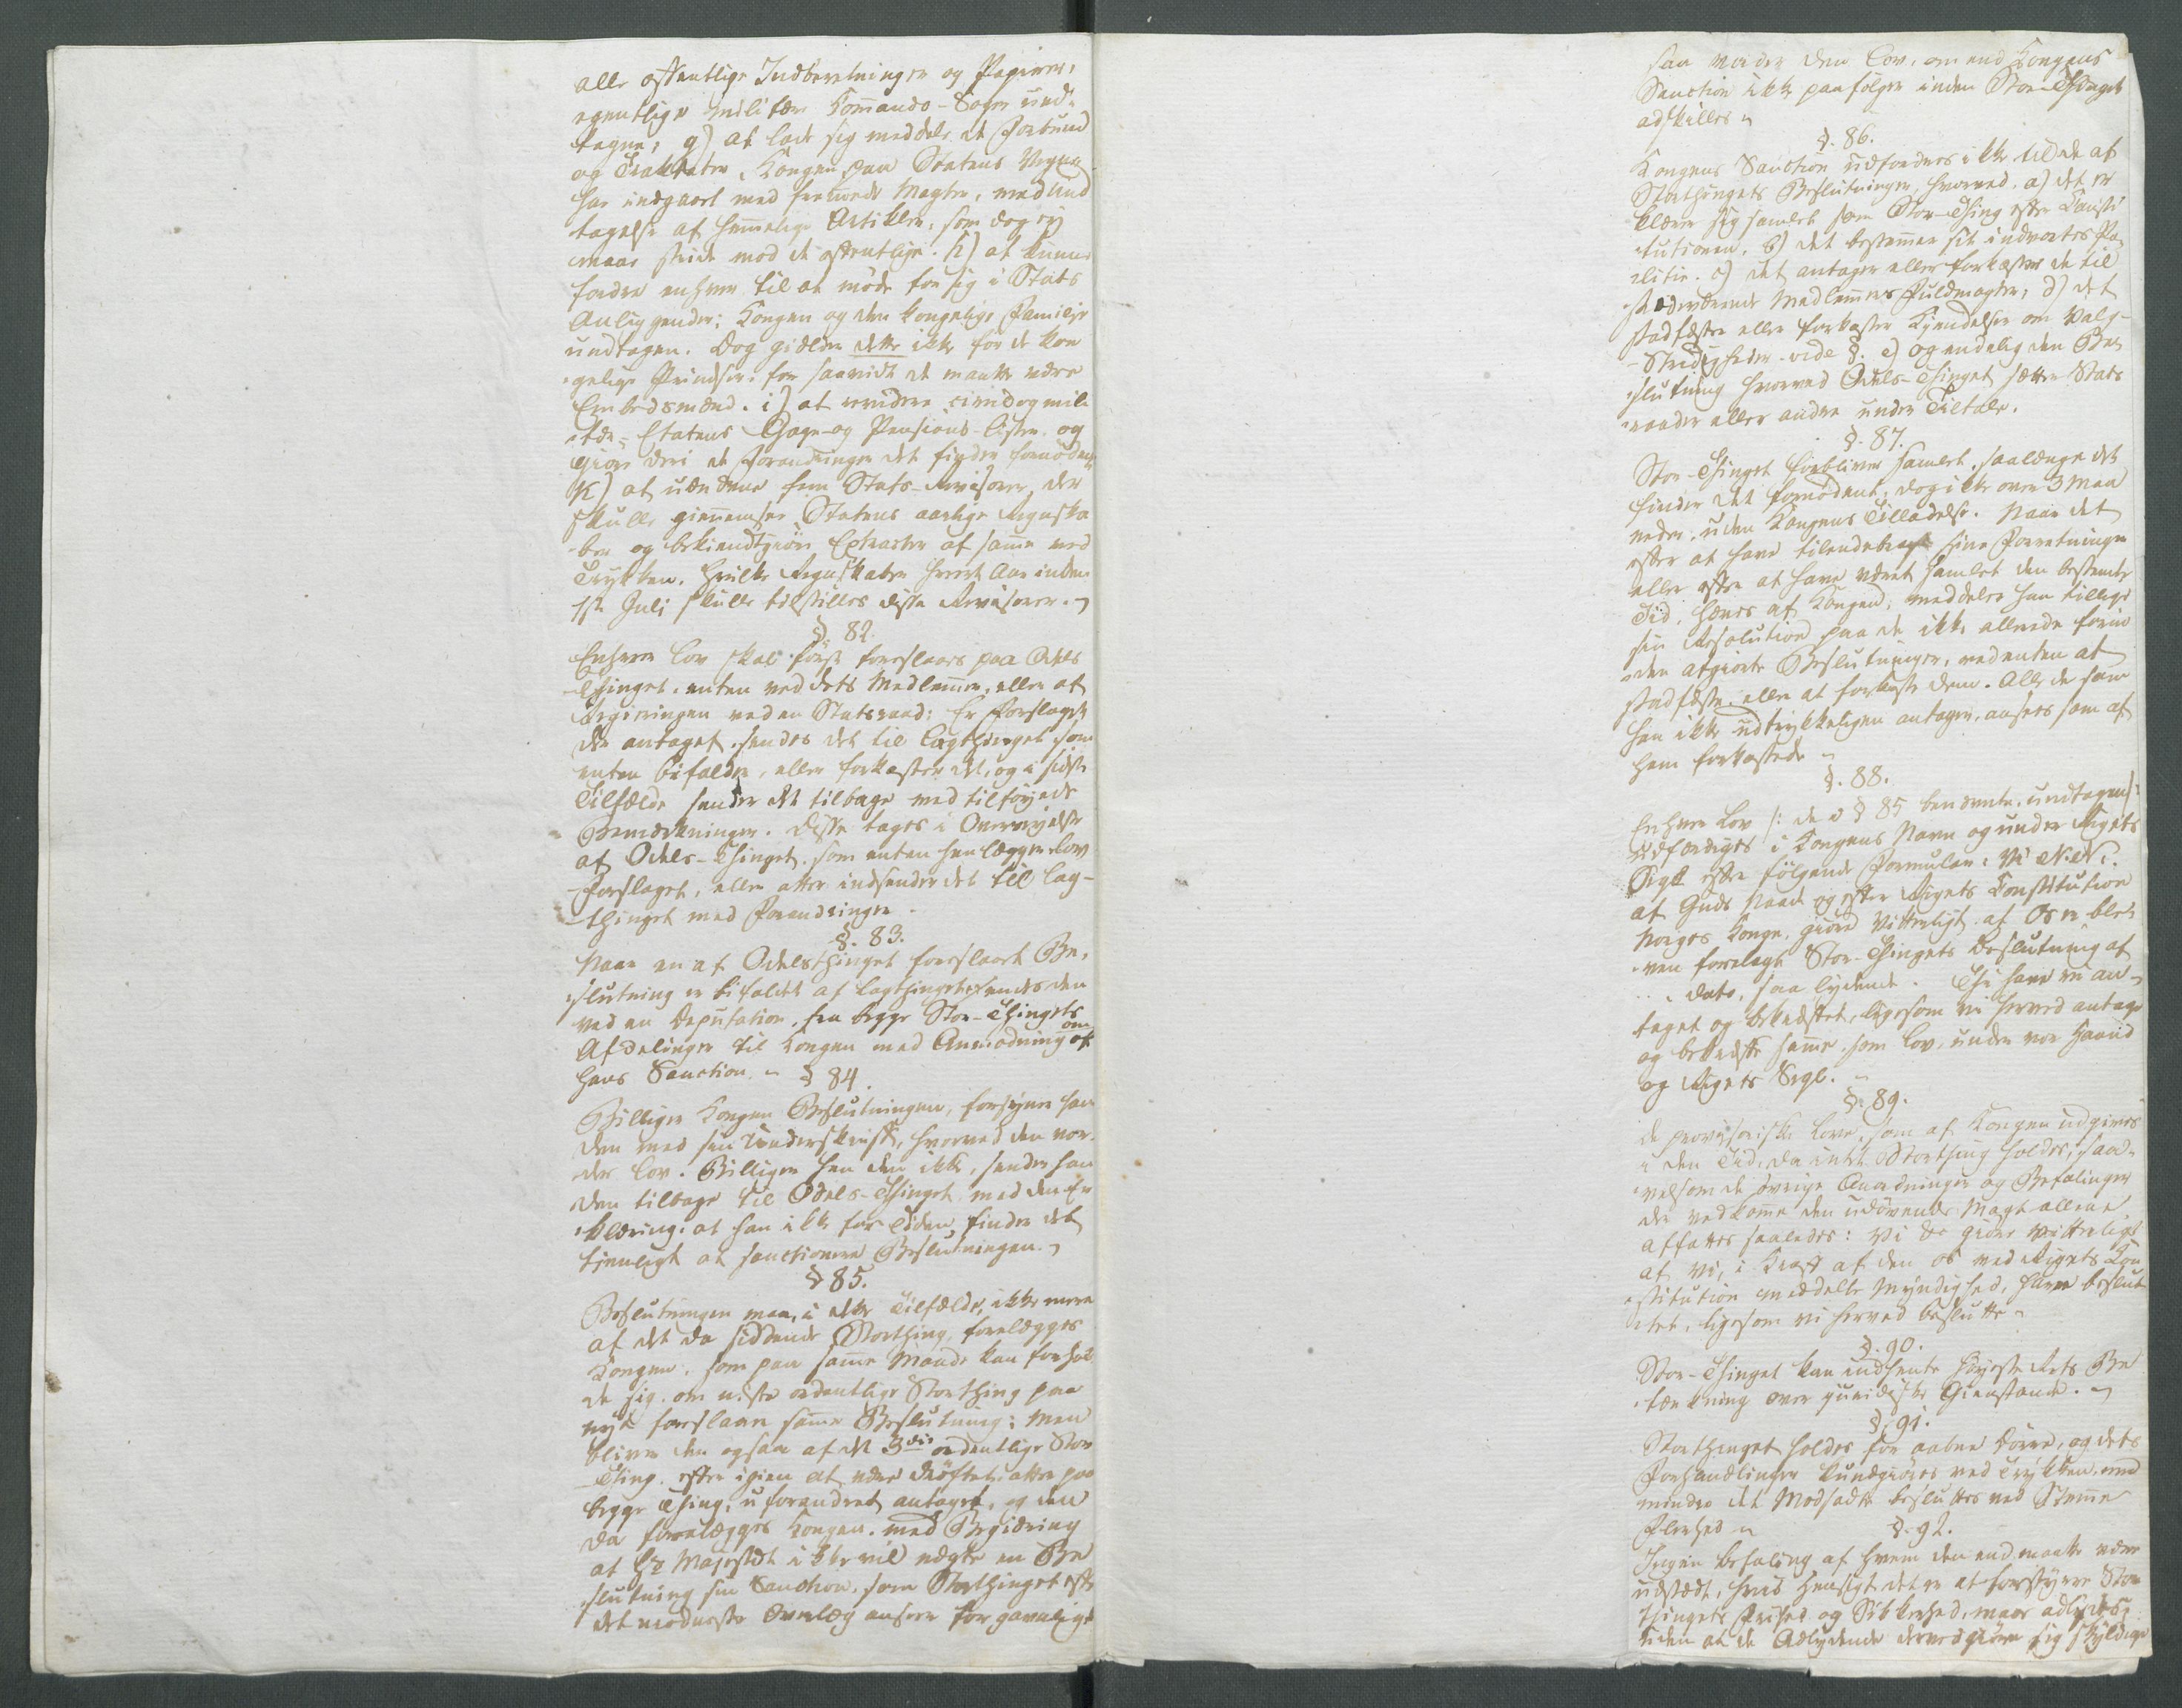 alle offentlige Indberetninger og Papirer,
egentlige militær Komando-Sager und-
tagne; g) at lade sig meddele de Forbund
og Traktater, Kongen paa Statens Vegne
har indgaaet med fremede Magter, med Und
tagelse af hemelige Artikler, som dog ej
maae stride mod de offentlige. h) at kunne
fordre enhver til at møde for sig i Stats
Anliggender; Kongen og den kongelige Familie
undtagen. Dog gielder dette ikke for de kon
gelige Prindser, for saavidt de maatte være
Embedsmænd. i) at revidere civil og mili
-tær-Etatens Gage- og Pensions-Lister og
giøre deri de Forandringer det finder fornødne
k) at udnævne fem Stats-Revisorer, der
skulle gienemsee Statens aarlige Regnska
ber og bekiendtgiøre Extracter af same ved
Trykken. Hvilke Regnskaber hvert Aar inden
1ste Juli skulle tilstilles disse Revisorer.
§. 82.
Enhver Lov skal først foreslaaes paa Odels
-Thinget, enten ved dets Medlemer, eller af
Regieringen ved en Statsraad: Er Forslaget
der antaget, sendes det til Lagthinget, som
enten bifalder, eller forkaster det, og i sidste
Tilfælde sender det tilbage med tilføyede
Bemærkninger. Disse tages i Overveyelse
af Odels-Thinget, som enten henlægger Lov
-Forslaget, eller atter indsender det til Lag-
thinget med Forandringer.
§. 83.
Naar en af Odelsthinget foreslaaet Be-
slutning er bifaldet af Lagthinget, sendes den
ved en Deputation, fra begge Stor-Thingets
Afdelinger til Kongen med Anmodning om
hans Sanction. § 84.
Billiger Kongen Beslutningen, forsyner han
den med sin Underskrift, hvorved den vor-
der Lov. Billiger han den ikke, sender han
den tilbage til Odels-Thinget med den Er
klæring, at han ikke for Tiden finder det
tienligt at sanctionere Beslutningen.
§ 85.
Beslutningen maa, i dette Tilfælde, ikke mere
af det da siddende Storthing forelægges
Kongen, som paa same Maade kan forhol
de sig, om næste ordentlige Storthing paa
nyt foreslaaer same Beslutning: Men
bliver den ogsaa af det 3die ordentlige Stor
-Thing, efter igien at være drøftet, atter paa
begge Thing, uforandret antaget, og den
da forelægges Kongen, med Begiæring
at Hs Majestæt ikke vil nægte en Be
slutning sin Sanction, som Storthinget efter
det modneste Overlæg anseer for gavnligt
saa vorder den Lov, om end Kongens
Sanction ikke paafølger inden Stor-Thinget
adskilles
§. 86.
Kongens Sanction udfordres ikke til de af
Storthingets Beslutninger, hvorved, a) det er
klærer sig samlet som Stor-Thing efter Consti
tutionen, b) det bestemer sit indvortes Po
litie. c) det antager eller forkaster de til
stædeværende Medlemers Fuldmagter, d) det
stadfæster eller forkaster Kjendelser om Valg-
-Stridigheder vide §. e) og endelig den Be
slutning hvorved Odels-Thinget sætter Stats
raader eller andre under Tiltale.
§. 87.
Stor-Thinget forbliver samlet, saalænge det
finder det fornødent, dog ikke over 3 Maa
neder, uden Kongens Tilladelse. Naar det
efter at have tilendebragt sine Forretninger
eller efter at have været samlet den bestemte
Tid, hæves af Kongen, meddeler han tillige
sin Resolution paa de ikke allerede forin
den afgiorte Beslutninger, ved enten at
stadfæste, eller at forkaste dem. Alle de som
han ikke udtrykkeligen antager, ansees som af
ham forkastede
§. 88.
Enhver Lov /: de i § 85 benævnte, undtagen :/
udfærdiges i Kongens Navn og under Rigets
Segl efter følgende Formular: Vi N. N.
af Guds Naade og efter Rigets Constitution
Norges Konge, giøre vitterligt: at Os er ble-
ven forelagt Stor-Thingets Beslutning af
. . . Dato, saa lydende. Thi have vi an-
taget og bekræftet, ligesom vi herved antage
og bekræfte same, som Lov, under vor Haand
og Rigets Segl.
§. 89.
De provisoriske Love, som af Kongen udgives
i den Tid, da intet Storthing holdes, saa-
velsom de øvrige Anordninger og Befalinger
der vedkome den udøvende Magt allene,
affattes saaledes: Vi &c giøre vitterligt
at vi, i Kraft af den os ved Rigets Con
stitution meddeelte Myndighed, have beslut
tet, ligesom vi herved beslutte
§. 90.
Stor-Thinget kan indhente Høyeste Rets Be
tænkning over juridiske Gienstande.
§. 91.
Storthinget holdes for aabne Dørre, og dets
Forhandlinger kundgiøres ved Trykken, med
mindre det Modsadte besluttes ved Steme
Flerhed §. 92.
Ingen Befaling af hvem den end maatte være
udstædt, hvis Hensigt det er at forstyrre Stor
Thingets Frihed og Sikkerhed, maae adlydes,
uden at de Adlydende derved giøre sig skyldige